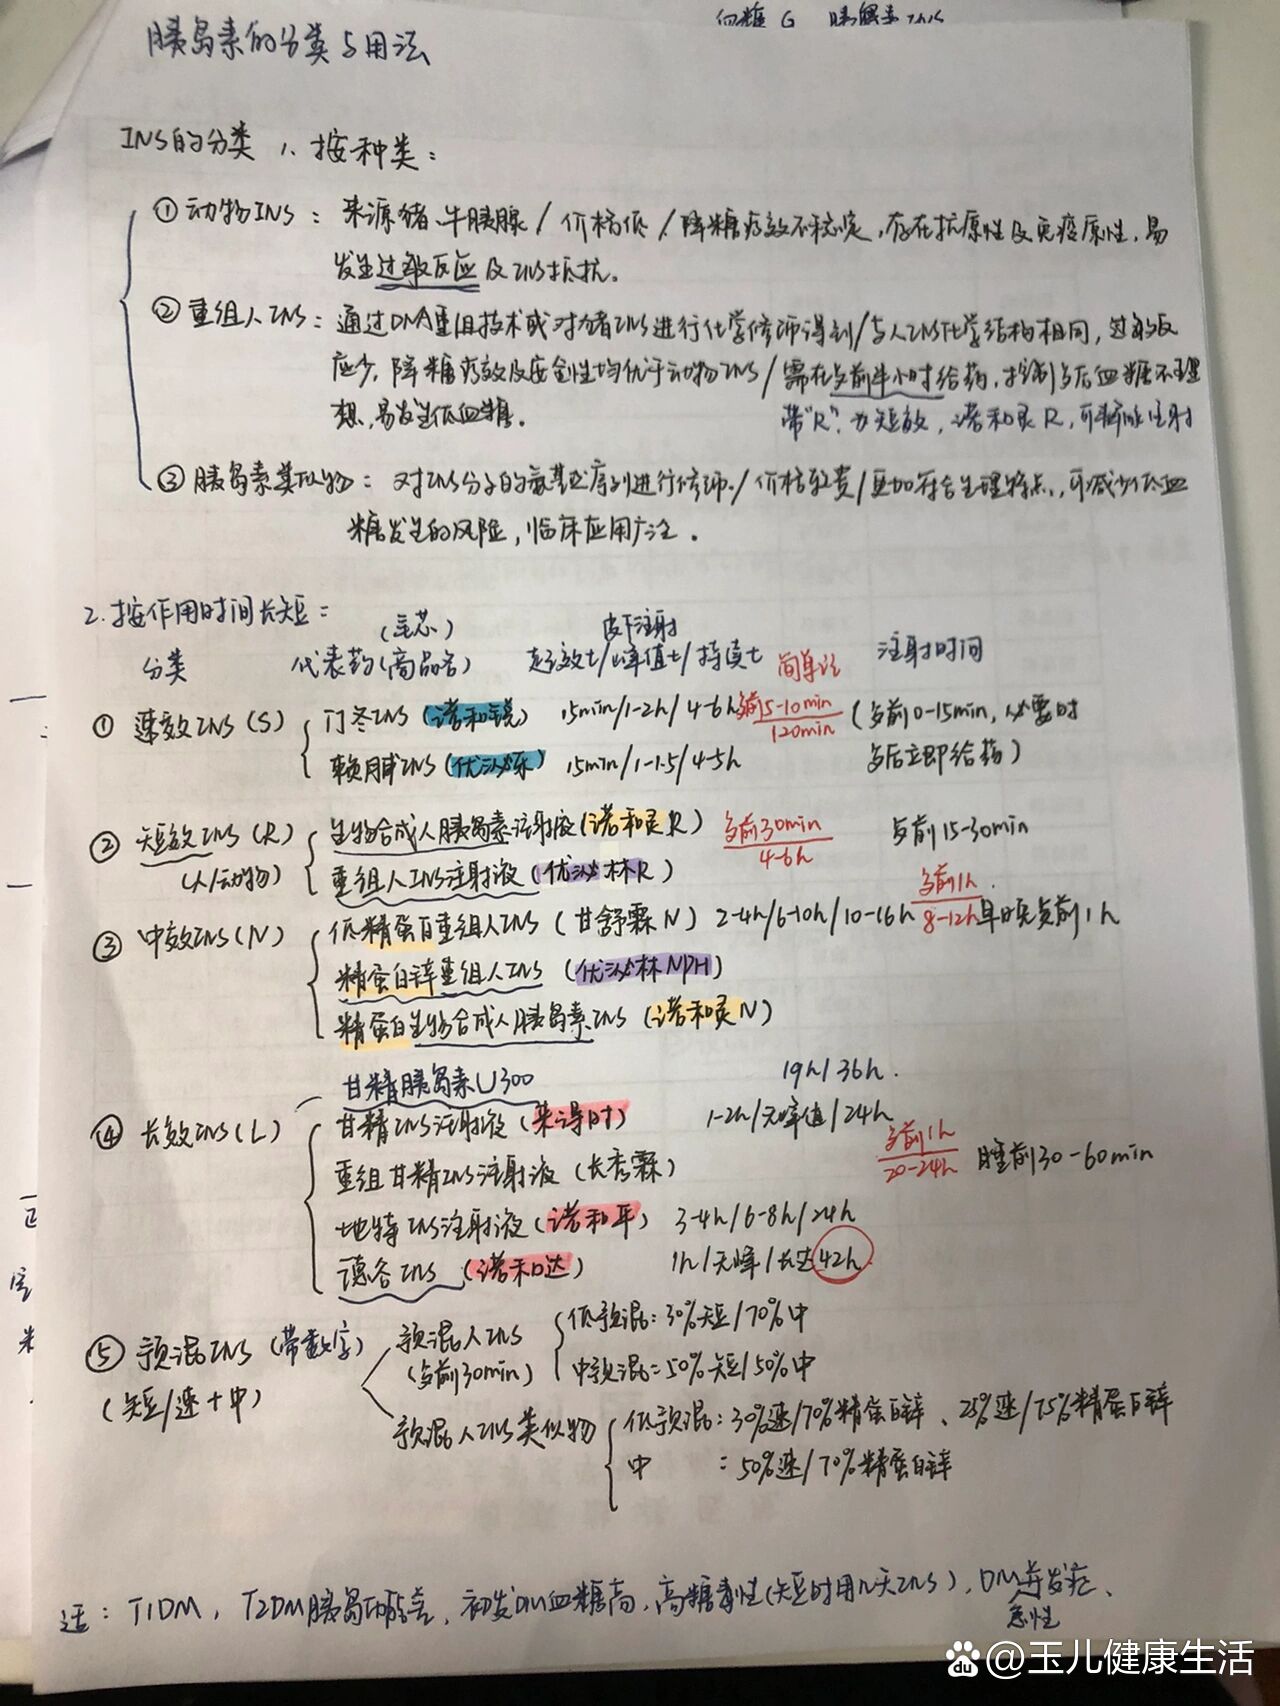 血糖G 胰腺素 INS
胰岛素的分类与用法
INS的分类 1、按种类：
①动物INS：来源猪、牛胰腺/价格低/降糖疗效不稳定，存在抗原性及免疫原性，易
发生过敏反应及INS抵抗。
②重组人INS：通过DNA重组技术或对猪INS进行化学修饰得到/与人INS化学结构相同，过敏反
应少，降糖疗效及安全性均优于动物INS/需在餐前半小时给药，控制餐后血糖不理
想，易发生低血糖。 带"R"，为短效，诺和灵R，可静脉注射
③胰岛素类似物：对INS分子的氨基酸序列进行修饰/价格较贵/更加符合生理特点，可减少低血
糖发生的风险，临床应用广泛。
2.按作用时间长短：
(笔芯) 皮下注射
分类 代表药(商品名) 起效t/峰值t/持续t 简单记 注射时间
①速效INS(S) 门冬INS(诺和锐) 15min/1-2h/4-6h 餐前5-10min (餐前0-15min，必要时
120min
赖脯INS(优泌乐) 15min/1-1.5/4-5h 餐后立即给药)
②短效INS(R) 生物合成人胰岛素注射液(诺和灵R) 餐前30min 餐前15-30min
4-6h
(人/动物) 重组人INS注射液(优泌林R)
餐前1h
③中效INS(N) 低精蛋白重组人INS(甘舒霖N) 2-4h/6-10h/10-16h 8-12h 早晚餐前1h
精蛋白锌重组人INS(优泌林NPH)
精蛋白生物合成人胰岛素INS(诺和灵N)
甘精胰岛素U300 19h/36h.
④长效INS(L) 甘精INS注射液(来得时) 1-2h/无峰值/24h
餐前1h
20-24h 睡前30-60min
重组甘精INS注射液(长秀霖)
地特INS注射液(诺和平) 3-4h/6-8h/24h
德谷INS(诺和达) 1h/无峰/长达42h
⑤预混INS(带数字) 预混人INS 低预混：30%短/70%中
(短/速+中) (餐前30min) 中预混=50%短/50%中
预混人INS类似物 低预混：30%速/70%精蛋白锌、25%速/75%精蛋白锌
中 ：50%速/70%精蛋白锌
适：T1DM，T2DM胰岛功能差，初发DM血糖高，高糖毒性(短时用几天INS)，DM并发症、
急性
du @玉儿健康生活